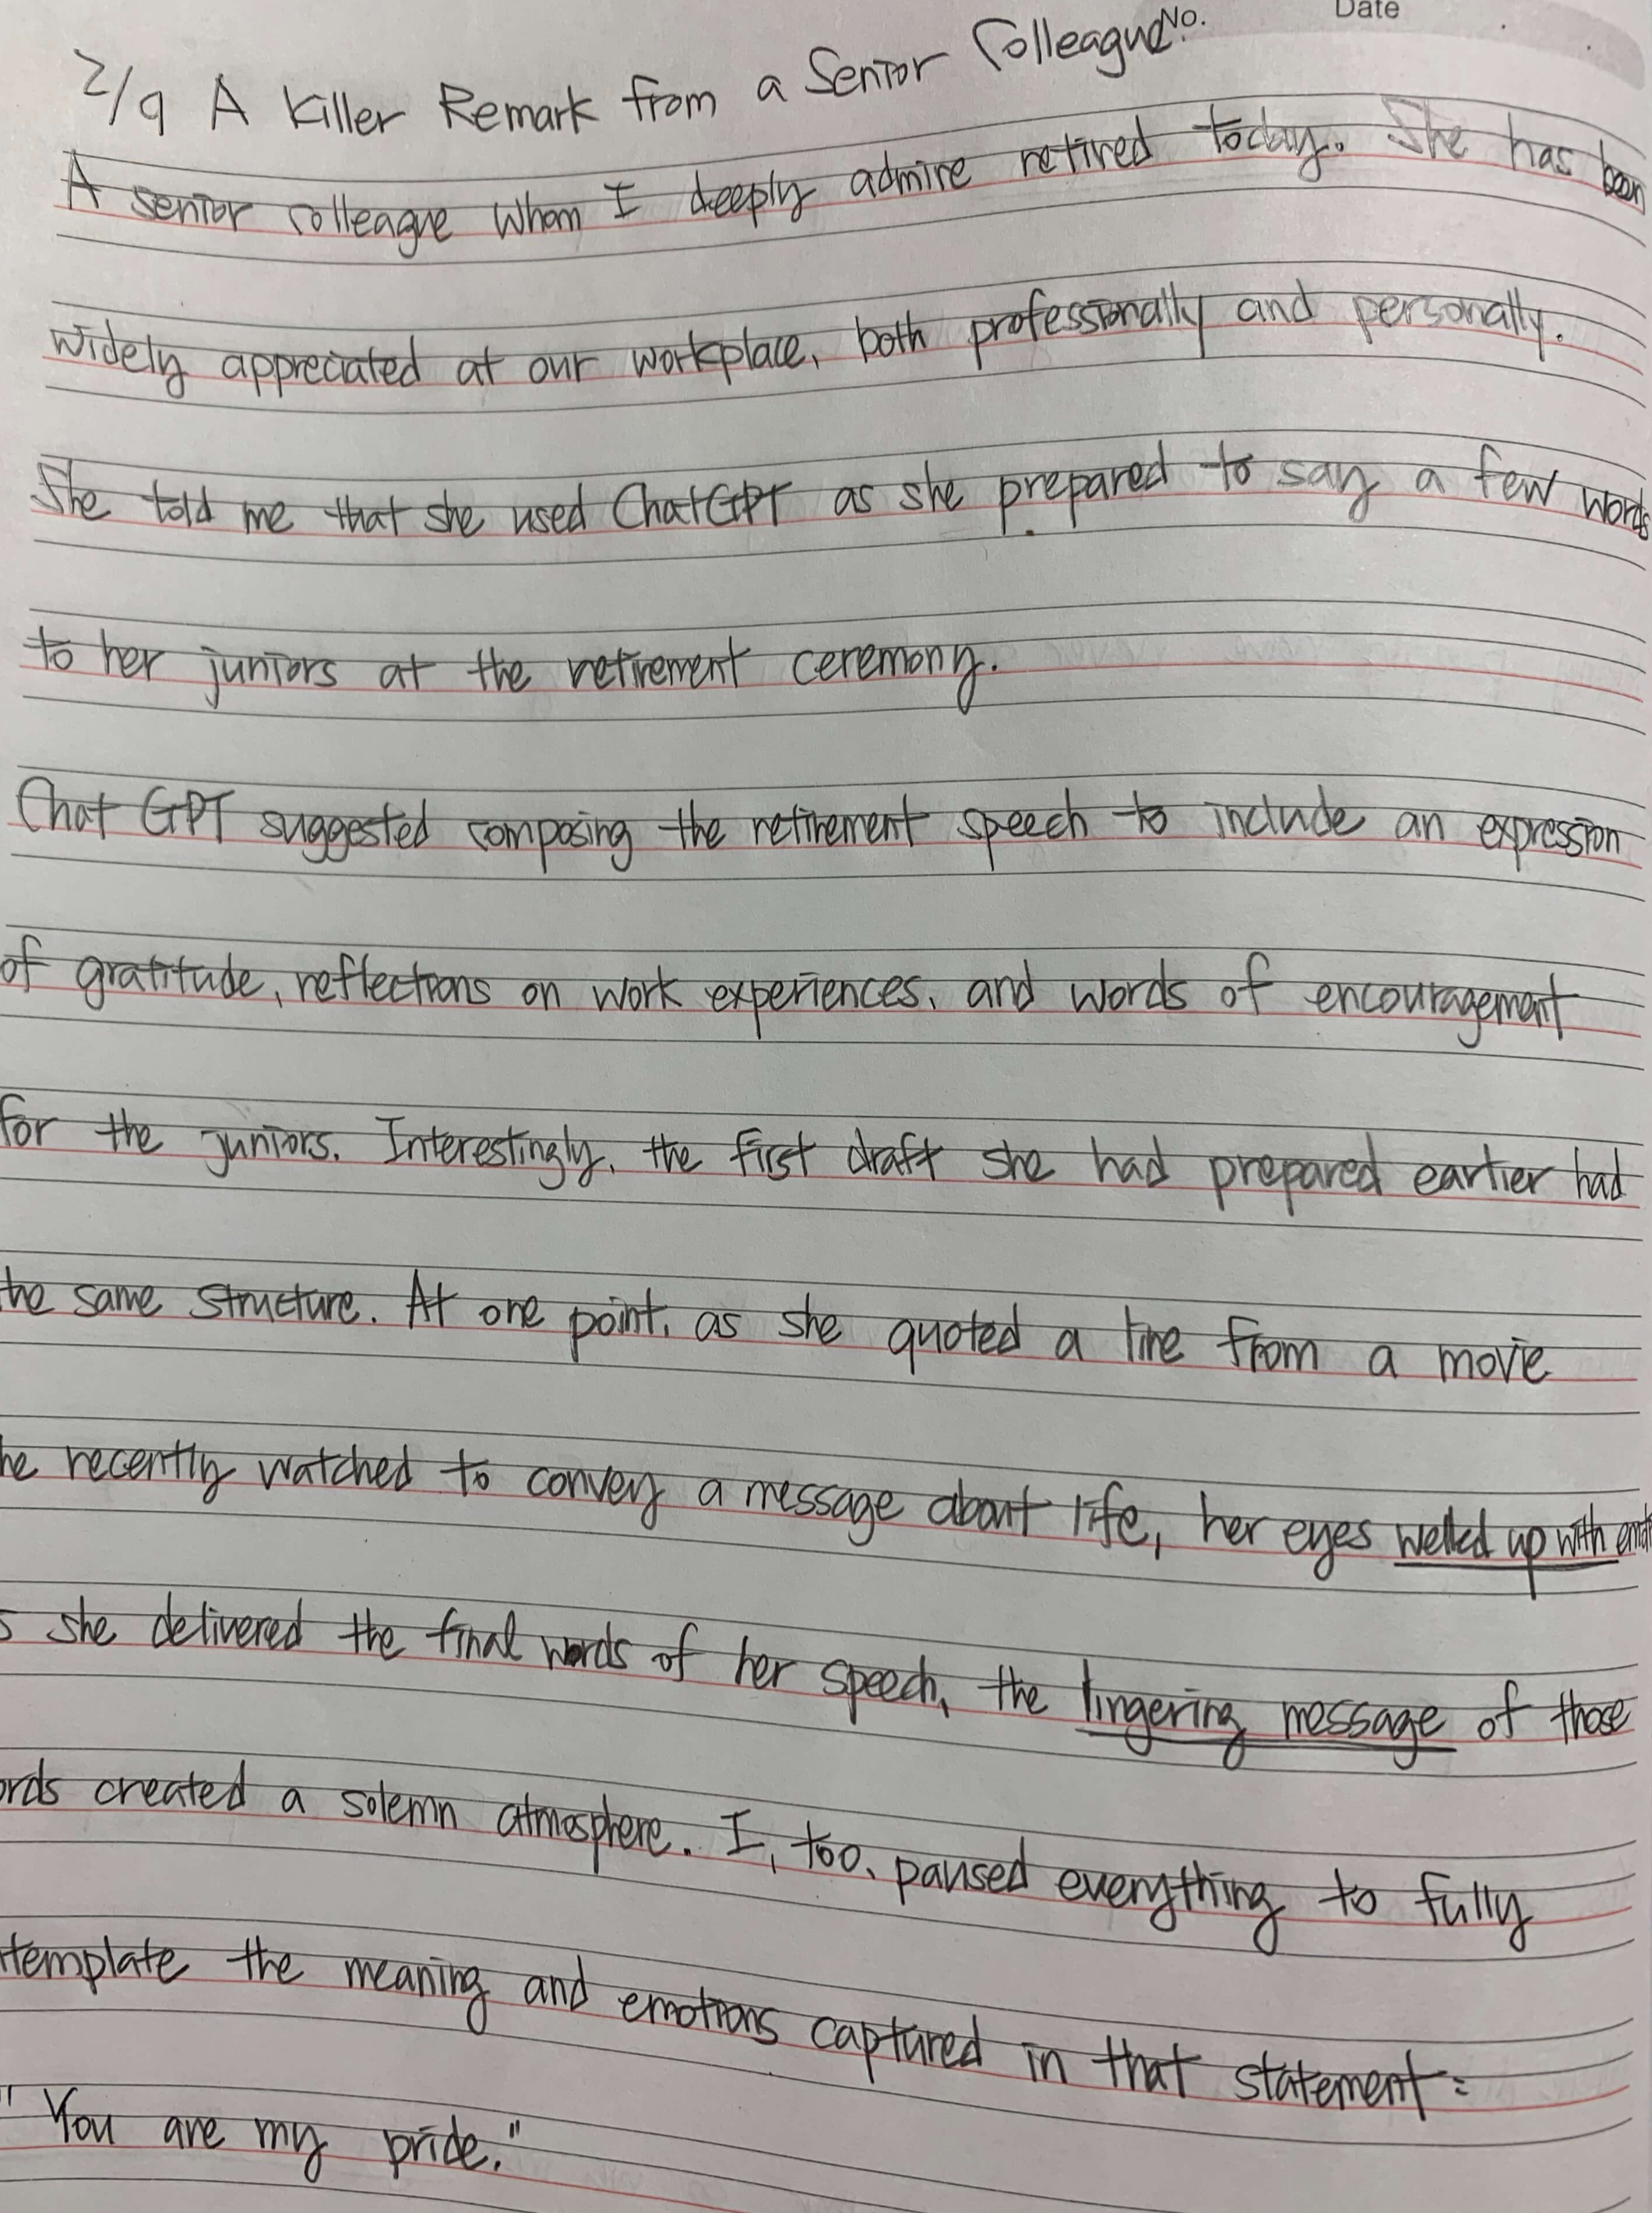 No. Date
2/9 A Killer Remark from a Senior Colleague
A senior colleague whom I deeply admire retired today. She has been
widely appreciated at our workplace, both professionally and personally.
She told me that she used ChatGPT as she prepared to say a few words
to her juniors at the retirement ceremony.
Chat GPT suggested composing the retirement speech to include an expression
of gratitude, reflections on work experiences, and words of encouragement
for the juniors. Interestingly, the first draft she had prepared earlier had
the same structure. At one point, as she quoted a line from a movie
he recently watched to convey a message about life, her eyes welled up with
s she delivered the final words of her speech, the lingering message of those
ords created a solemn atmosphere. I, too, paused everything to fully
template the meaning and emotions captured in that statement:
"You are my pride."